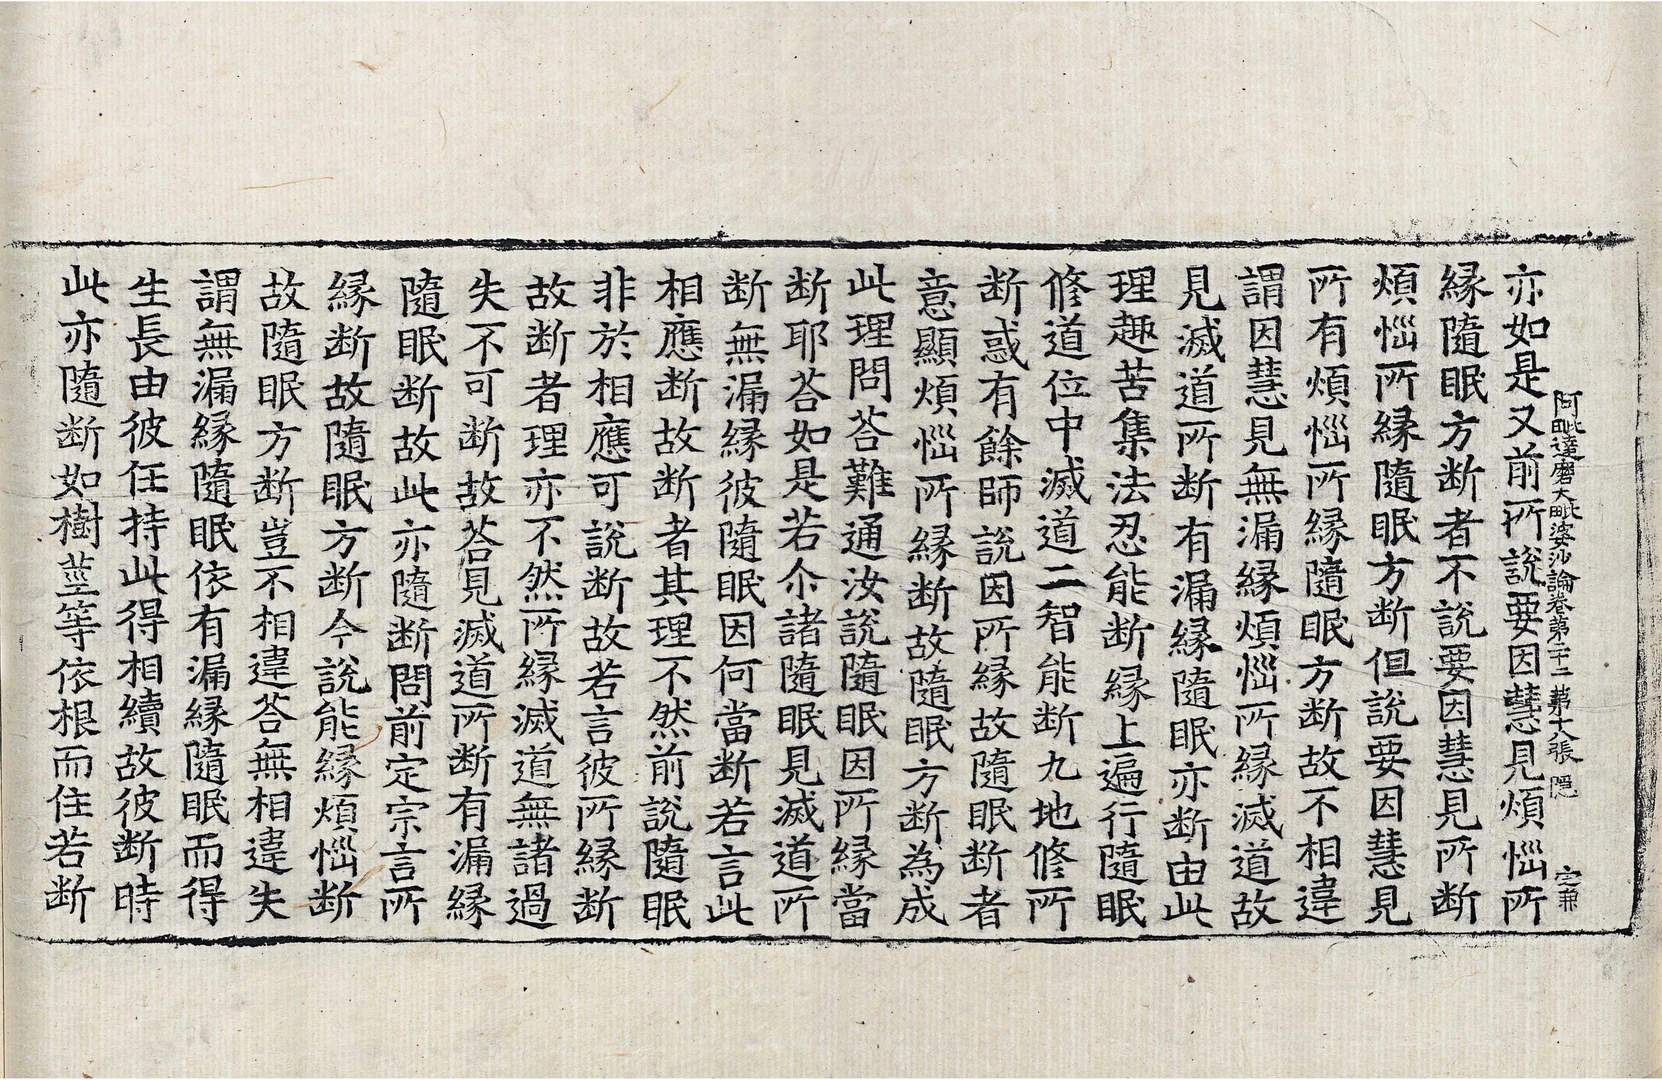 阿毗達磨大毗婆沙論卷第二十二 苐十六張 隱
亦如是又前所說要因慧見煩惱所
緣隨眠方断者不說要因慧見所断
煩惱所緣隨眠方断但說要因慧見
所有煩惱所緣隨眠方断故不相違
謂因慧見無漏緣煩惱所緣滅道故
見滅道所断有漏緣隨眠亦断由此
理趣苦集法忍能断緣上遍行隨眠
修道位中滅道二智能断九地修所
断惑有餘師說因所緣故隨眠断者
意顯煩惱所緣断故隨眠方断為成
此理問荅難通汝說隨眠因所緣當
断耶荅如是若尒諸隨眠見滅道所
断無漏緣彼隨眠因何當断若言此
相應断故断者其理不然前說隨眠
非於相應可說断故若言彼所緣断
故断者理亦不然所緣滅道無諸過
失不可断故荅見滅道所断有漏緣
隨眠断故此亦隨断問前定宗言所
緣断故隨眠方断今說能緣煩惱断
故隨眠方断豈不相違荅無相違失
謂無漏緣隨眠依有漏緣隨眠而得
生長由彼任持此得相續故彼断時
此亦隨断如樹莖等依根而住若断